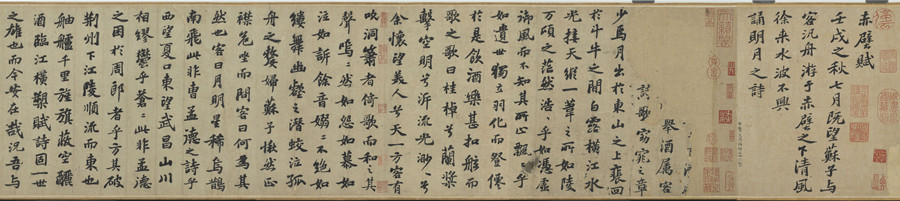 赤壁賦
壬戌之秋七月既望蘇子与
客汎舟游于赤壁之下清風
徐来水波不興
誦明月之詩
舉酒屬客
歌窈窕之章
少焉月出於東山之上裴回
於斗牛之間白露橫江水
光接天縱一葦之所如陵
萬頃之茫然浩々乎如憑虛
御風而不知其所止飄々乎
如遺世獨立羽化而登僊
於是飲酒樂甚扣舷而
歌之歌曰桂棹兮蘭槳
擊空明兮泝流光渺々兮
余懷望美人兮天一方客有
吹洞簫者倚歌而和之其
聲嗚々然如怨如慕如
泣如訴餘音嫋々不絕如
縷舞幽壑之潛蛟泣孤
舟之嫠婦蘇子愀然正
襟危坐而問客曰何為其
然也客曰月明星稀烏鵲
南飛此非曹孟德之詩乎
西望夏口東望武昌山川
相繆鬱乎蒼々此非孟德
之困於周郎者乎方其破
荊州下江陵順流而東也
舳艫千里旌旗蔽空釃
酒臨江橫槊賦詩固一世
之雄也而今安在哉況吾與